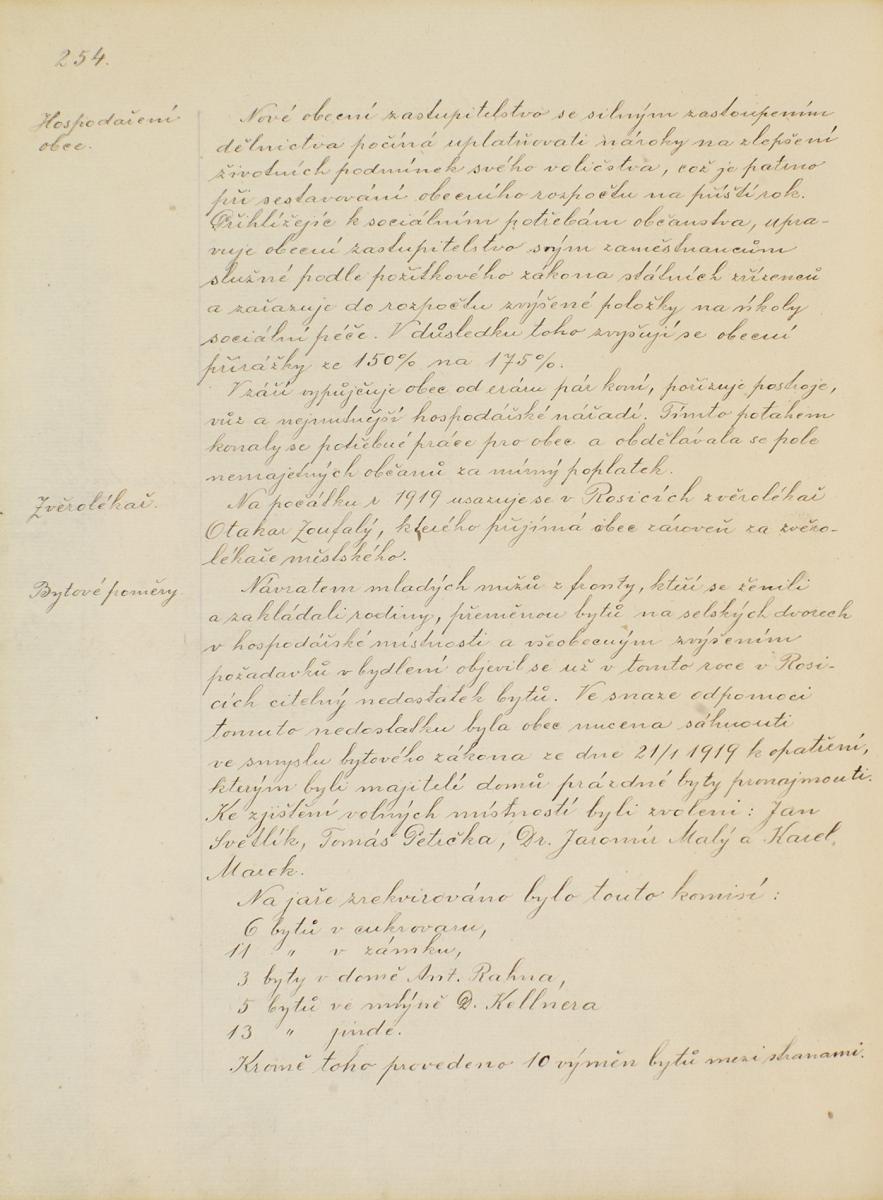 254.
Hospodaření
obce.
Nové obecní zastupitelstvo se silným zastoupením
dělnictva počíná uplatňovati nároky na zlepšení
životních podmínek svého voličstva, což je patrno
při sestavování obecního rozpočtu na příští rok.
Přihlížejíc k sociálním potřebám občanstva, upra-
vuje obecní zastupitelstvo svým zaměstnancům
služné podle požitkového zákona státních zřízenců
a zařazuje do rozpočtu zvýšené položky na úkoly
sociální péče. V důsledku toho zvyšují se obecní
přirážky ze 150% na 175%.
V září vypůjčuje obec od eráru pár koní, pořizuje postroje,
vůz a nejnutnější hospodářské nářadí. Tímto potahem
konaly se potřebné práce pro obec a obdělávala se pole
nemajetných občanů za mírný poplatek.
Zvěrolékař.
Na počátku r 1919 usazuje se v Rosicích zvěrolékař
Otakar Zoufalý, kterého přijímá obec zároveň za zvěro-
lékaře městského.
Bytové poměry
Návratem mladých mužů z fronty, kteří se ženili
a zakládali rodiny, přeměnou bytů na selských dvorech
v hospodářské místnosti a všeobecným zvýšením
požadavků v bydlení objevil se už v tomto roce v Rosi-
cích citelný nedostatek bytů. Ve snaze odpomoci
tomuto nedostatku byla obec nucena sáhnouti
ve smyslu bytového zákona ze dne 21/1 1919 k opatření,
kterým byli majitelé domů prázdné byty pronajmouti.
Ke zjištění volných místností byli zvoleni: Jan
Světlík, Tomáš Petrčka, Dr. Jaromír Malý a Karel
Marek.
Na jaře zrekvirováno bylo touto komisí:
6 bytů v cukrovaru,
11 " v zámku,
3 byty v domě Ant. Rahna,
5 bytů ve mlýně D. Kellnera
13 " jinde.
Kromě toho provedeno 10 výměn bytů mezi stranami.